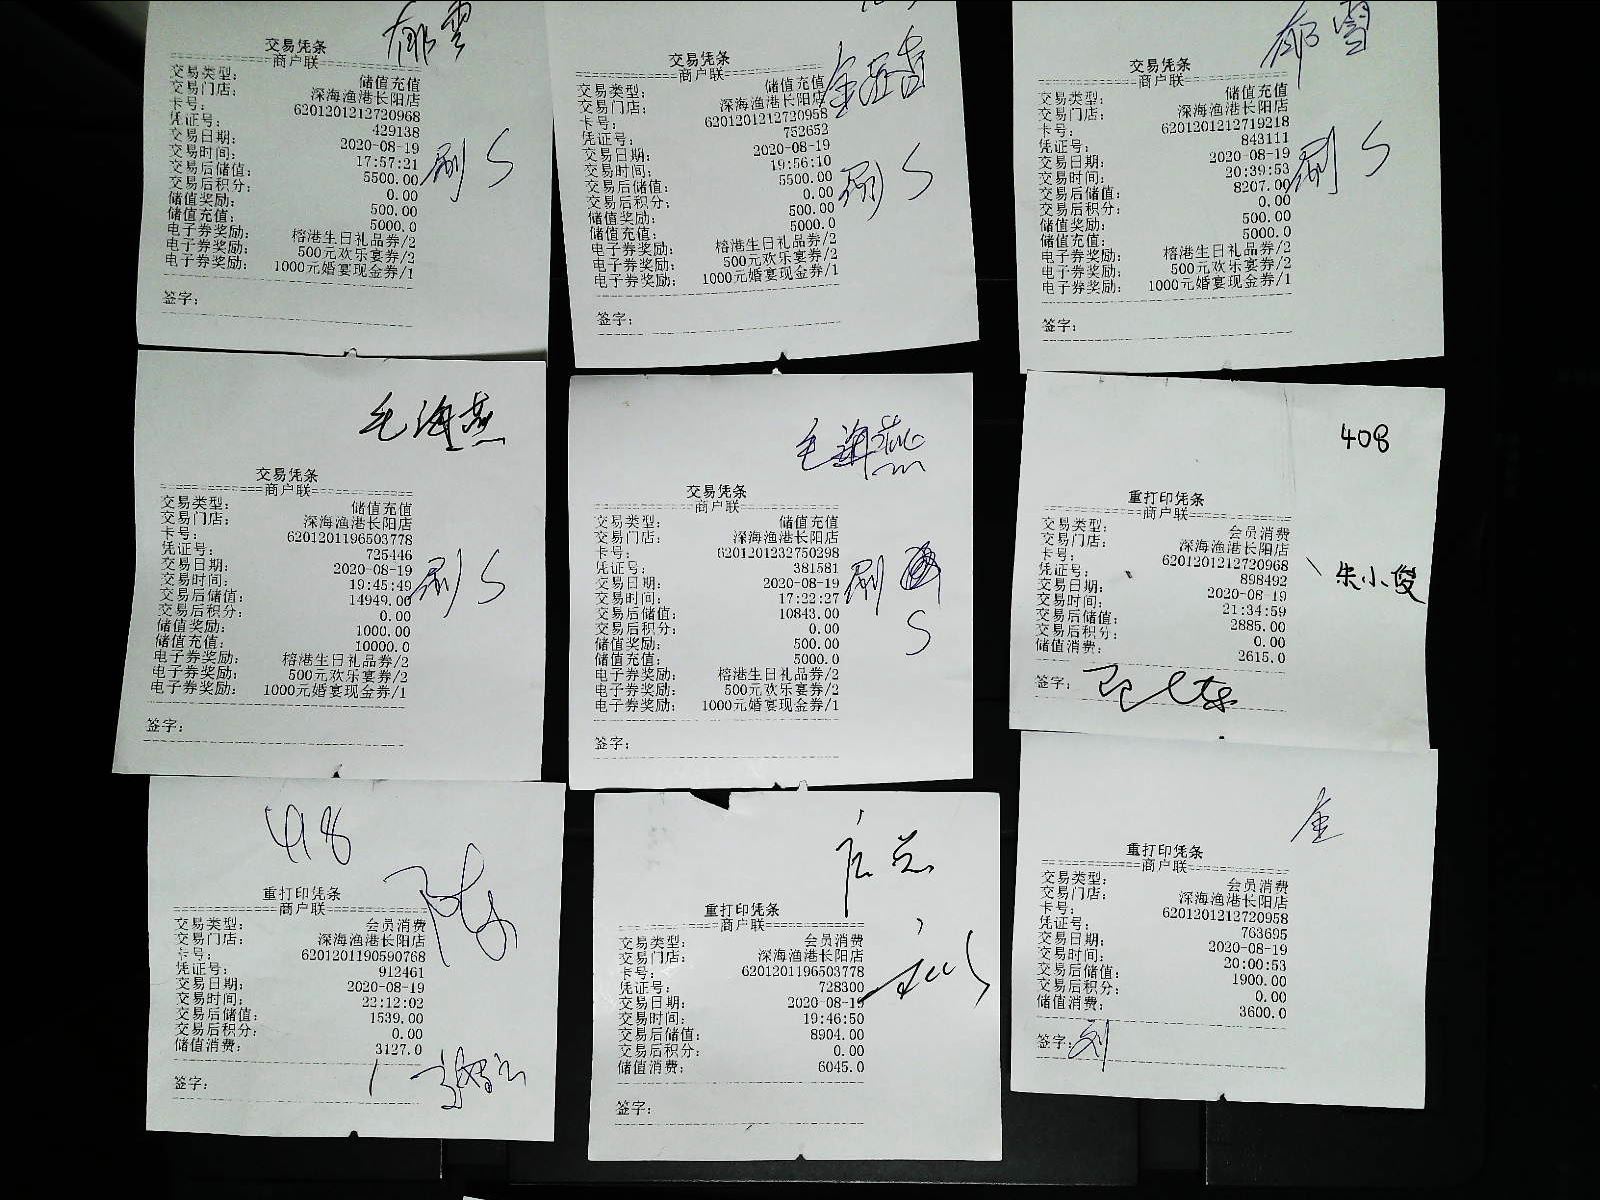 郁雪
交易凭条
商户联
交易类型: 储值充值
交易门店: 深海渔港长阳店
卡号: 6201201212720968
凭证号: 429138
交易日期: 2020-08-19
交易时间: 17:57:21
交易后储值: 5500.00
交易后积分: 0.00
储值奖励: 500.00
储值充值: 5000.0
电子券奖励: 榕港生日礼品券/2
电子券奖励: 500元欢乐宴券/2
电子券奖励: 1000元婚宴现金券/1
签字:
刷 S
交易凭条
商户联
交易类型: 储值充值
交易门店: 深海渔港长阳店
卡号: 6201201212720958
凭证号: 752652
交易日期: 2020-08-19
交易时间: 19:56:10
交易后储值: 5500.00
交易后积分: 0.00
储值奖励: 500.00
储值充值: 5000.0
电子券奖励: 榕港生日礼品券/2
电子券奖励: 500元欢乐宴券/2
电子券奖励: 1000元婚宴现金券/1
签字:
刷 S
郁雪
交易凭条
商户联
交易类型: 储值充值
交易门店: 深海渔港长阳店
卡号: 6201201212719218
凭证号: 843111
交易日期: 2020-08-19
交易时间: 20:39:53
交易后储值: 8207.00
交易后积分: 0.00
储值奖励: 500.00
储值充值: 5000.0
电子券奖励: 榕港生日礼品券/2
电子券奖励: 500元欢乐宴券/2
电子券奖励: 1000元婚宴现金券/1
签字:
刷 S
毛海燕
交易凭条
商户联
交易类型: 储值充值
交易门店: 深海渔港长阳店
卡号: 6201201196503778
凭证号: 725446
交易日期: 2020-08-19
交易时间: 19:45:49
交易后储值: 14949.00
交易后积分: 0.00
储值奖励: 1000.00
储值充值: 10000.0
电子券奖励: 榕港生日礼品券/2
电子券奖励: 500元欢乐宴券/2
电子券奖励: 1000元婚宴现金券/1
签字:
刷 S
毛海燕
交易凭条
商户联
交易类型: 储值充值
交易门店: 深海渔港长阳店
卡号: 6201201232750298
凭证号: 381581
交易日期: 2020-08-19
交易时间: 17:22:27
交易后储值: 10843.00
交易后积分: 0.00
储值奖励: 500.00
储值充值: 5000.0
电子券奖励: 榕港生日礼品券/2
电子券奖励: 500元欢乐宴券/2
电子券奖励: 1000元婚宴现金券/1
签字:
刷
S
408
重打印凭条
商户联
交易类型: 会员消费
交易门店: 深海渔港长阳店
卡号: 6201201212720968
凭证号: 898492
交易日期: 2020-08-19
交易时间: 21:34:59
交易后储值: 2885.00
交易后积分: 0.00
储值消费: 2615.0
签字:
朱小俊
418
重打印凭条
商户联
交易类型: 会员消费
交易门店: 深海渔港长阳店
卡号: 6201201190590768
凭证号: 912461
交易日期: 2020-08-19
交易时间: 22:12:02
交易后储值: 1539.00
交易后积分: 0.00
储值消费: 3127.0
签字:
重打印凭条
商户联
交易类型: 会员消费
交易门店: 深海渔港长阳店
卡号: 6201201196503778
凭证号: 728300
交易日期: 2020-08-19
交易时间: 19:46:50
交易后储值: 8904.00
交易后积分: 0.00
储值消费: 6045.0
签字:
金
重打印凭条
商户联
交易类型: 会员消费
交易门店: 深海渔港长阳店
卡号: 6201201212720958
凭证号: 763695
交易日期: 2020-08-19
交易时间: 20:00:53
交易后储值: 1900.00
交易后积分: 0.00
储值消费: 3600.0
签字: 刘